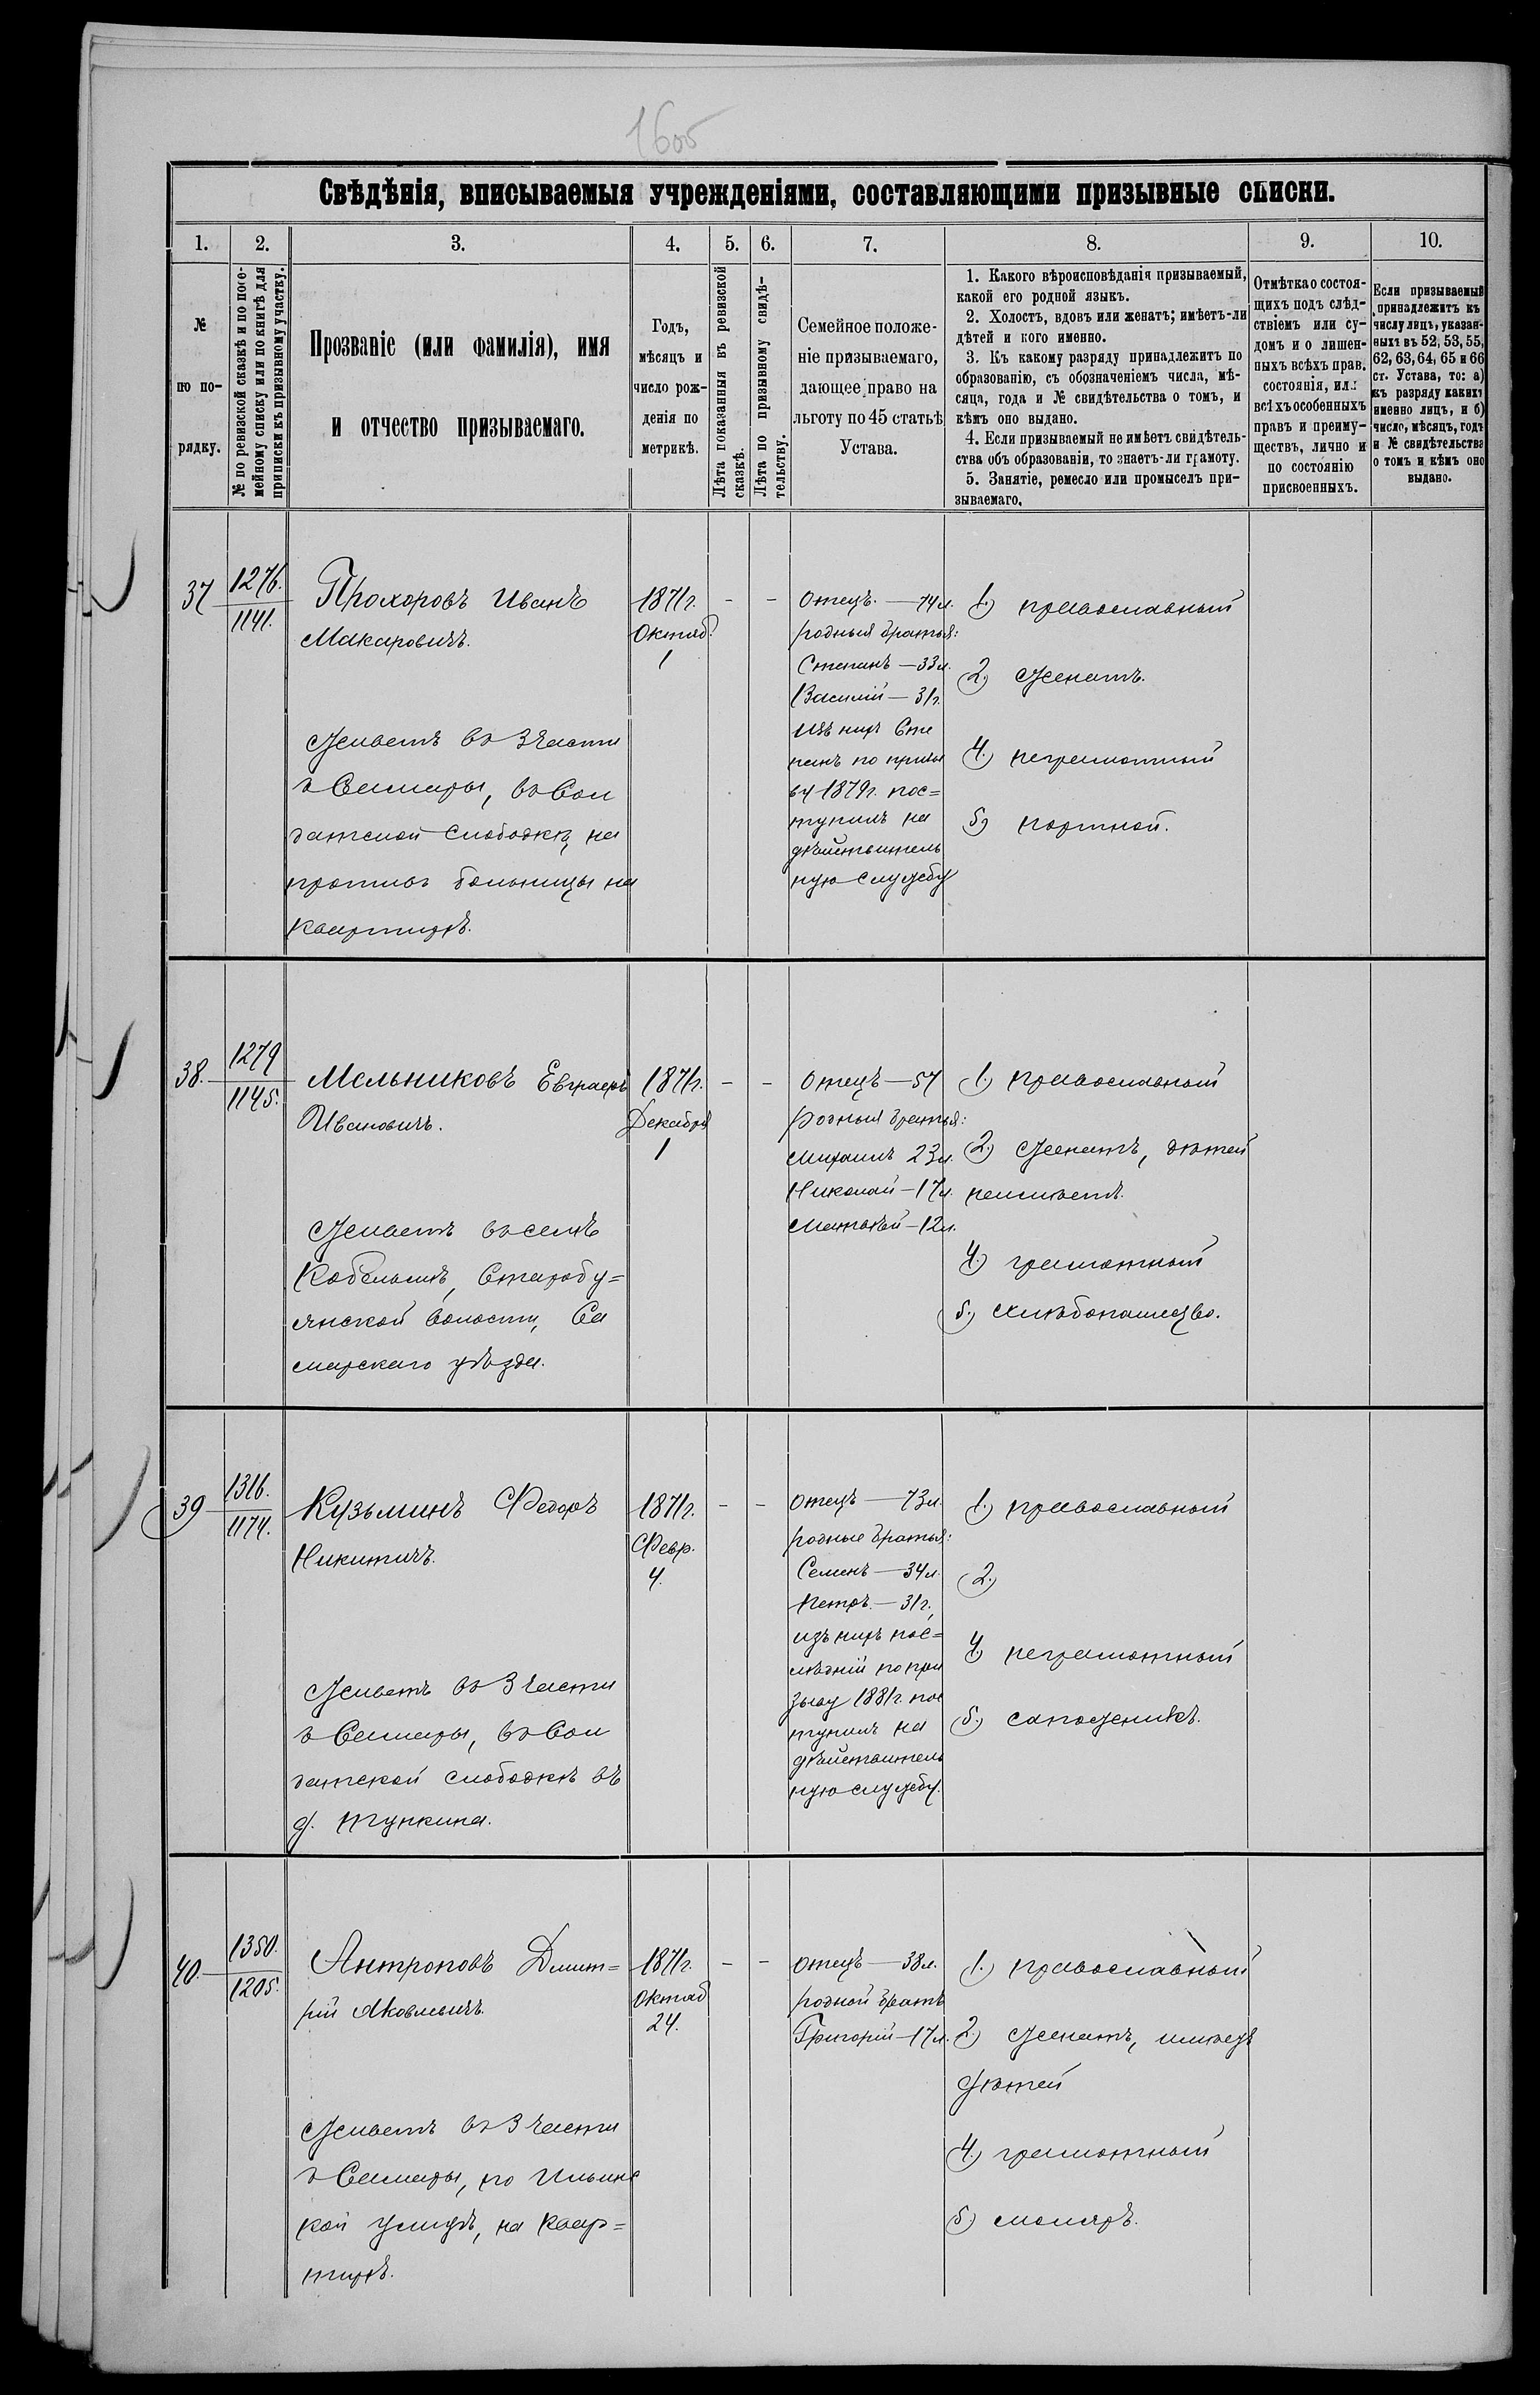 1605
Свѣдѣнія, вписываемыя учрежденіями, составляющими призывные списки.
1.
2.
3.
4.
5.
6.
7.
8.
9.
10.
№
по по-
рядку.
№ по ревизской сказкѣ и по посе-
мейному списку или по книгѣ для
приписки къ призывному участку.
Прозваніе (или фамилія), имя
и отчество призываемаго.
Годъ,
мѣсяцъ и
число рож-
денія по
метрикѣ.
Лѣта показанныя въ ревизской
сказкѣ.
Лѣта по призывному свидѣ-
тельству.
Семейное положе-
ніе призываемаго,
дающее право на
льготу по 45 статьѣ
Устава.
1. Какого вѣроисповѣданія призываемый,
какой его родной языкъ.
2. Холостъ, вдовъ или женатъ; имѣетъ-ли
дѣтей и кого именно.
3. Къ какому разряду принадлежитъ по
образованію, съ обозначеніемъ числа, мѣ-
сяца, года и № свидѣтельства о томъ, и
кѣмъ оно выдано.
4. Если призываемый не имѣетъ свидѣтель-
ства объ образованіи, то знаетъ-ли грамоту.
5. Занятіе, ремесло или промыселъ при-
зываемаго.
Отмѣтка о состоя-
щихъ подъ слѣд-
ствіемъ или су-
домъ и о лишен-
ныхъ всѣхъ прав.
состоянія, или
всѣхъ особенныхъ
правъ и преиму-
ществъ, лично и
по состоянію
присвоенныхъ.
Если призываемый
принадлежитъ къ
числу лицъ, указан-
ныхъ въ 52, 53, 55,
62, 63, 64, 65 и 66
ст. Устава, то: а)
къ разряду какихъ
именно лицъ, и б)
число, мѣсяцъ, годъ
и № свидѣтельства
о томъ и кѣмъ оно
выдано.
37
1276.
1141.
Прохоровъ Иванъ
Макаровичъ.
Живетъ въ 3 части
г Самары, въ Сол
датской слободкѣ, на
противъ больницы на
квартирѣ.
1871г.
Октяб.
1
-
-
Отецъ. — 74 л.
родныя братья:
Степанъ — 33 л.
Василій — 31 г.
изъ нихъ Сте
панъ по призы
ву 1879 г. пос=
тупилъ на
дѣйствитель
ную службу
1.) православный
2) Женатъ.
4.) неграмотный
5) портной.
38.
1279
1145.
Мельниковъ Евграфъ
Ивановичъ.
Живетъ въ селѣ
Кобельмѣ, Старобу=
янской волости, Са
марскаго уѣзда.
1871г.
Декабря
1
-
-
Отецъ — 54
Родныя братья:
Михаилъ 23 л.
Николай — 17 л.
Матвѣй — 12 л.
1.) православный
2.) Женатъ, дѣтей
неимѣетъ.
4.) грамотный
5.) хлѣбопашество.
39
1316.
1174.
Кузьминъ Федоръ
Никитичъ.
Живетъ въ 3 части
г Самары, въ Сол
датской слободкѣ въ
д. Тункина.
1871г.
Февр.
4.
-
-
Отецъ — 73 л.
родные братья:
Семенъ — 34 л.
Петръ. — 31 г.,
изъ нихъ пос=
лѣдній по при
зыву 1881 г. пос
тупилъ на
дѣйствитель
ную службу.
1.) православный
2.)
4.) неграмотный
5.) сапожникъ.
40.
1350.
1205.
Антроповъ Дмит=
рій Яковлевичъ.
Живетъ въ 3 части
г Самары, по Ильинс
кой улицѣ, на квар=
тирѣ.
1871г.
Октяб
24.
-
-
Отецъ — 38 л.
родной братъ
Григорій — 17 л.
1.) православный
2.) Женатъ, имѣетъ
дѣтей
4.) грамотный
5.) столяръ.